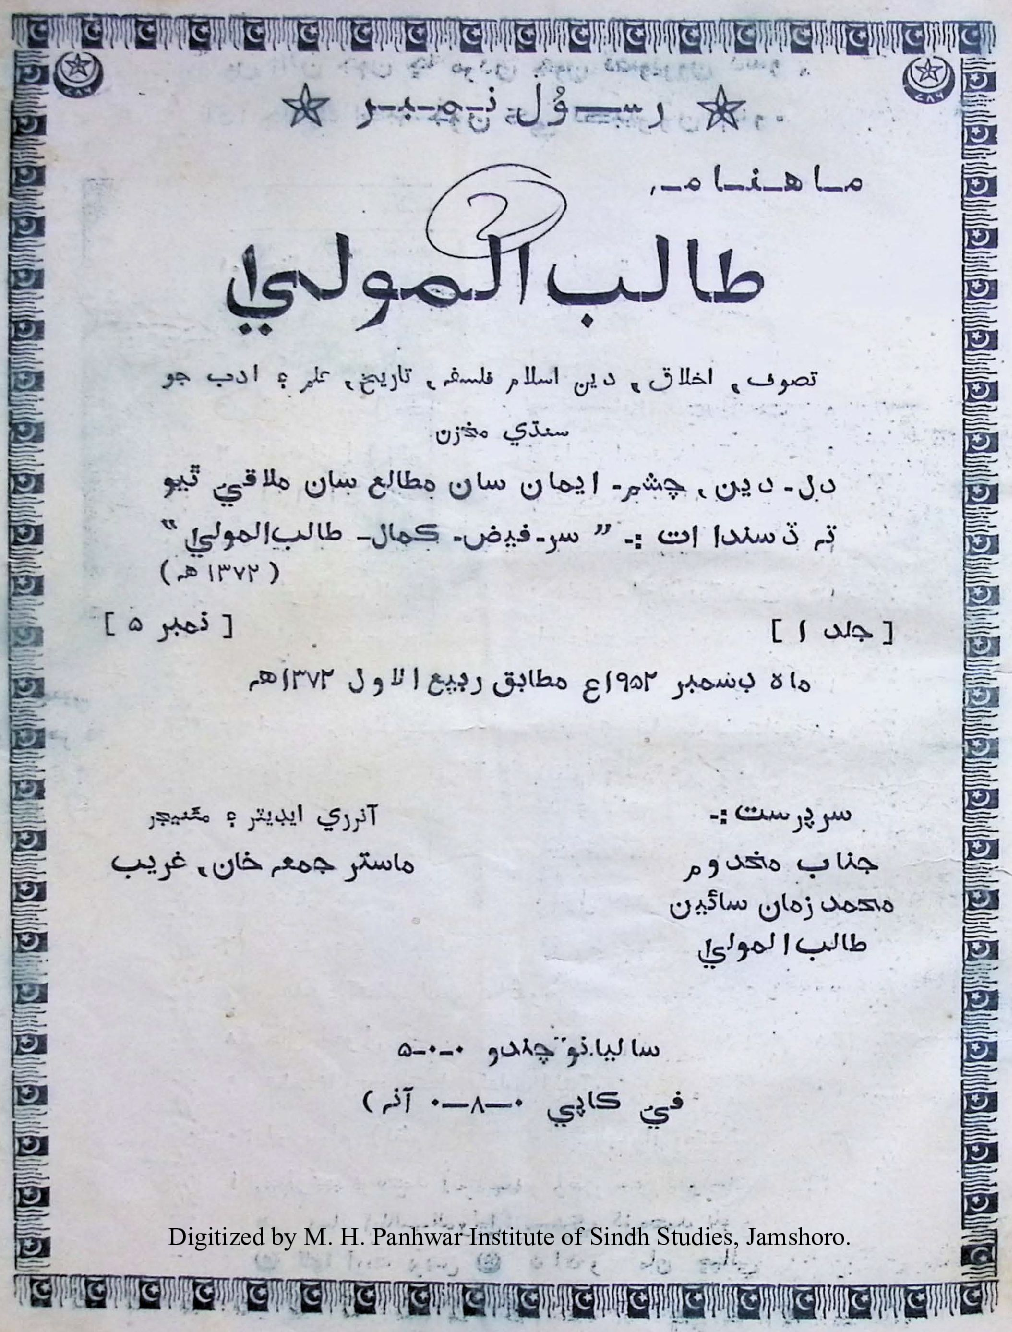 رسُول نمبر
2
ماهنامہ
طالب المولي
تصوف، اخلاق، دين اسلام فلسفہ، تاريخ، علم ۽ ادب جو
سنڌي مخزن
دل۔ دين، چشم۔ ايمان سان مطالع سان ملاقي ٿيو
تہ ڏسندا ات :۔ " سر۔ فيض۔ ڪمال۔ طالب المولي "
(۱۳۷۲ھ)
[ جلد ۱ ] [ نمبر ۵ ]
ماہ ڊسمبر ۱۹۵۲ع مطابق ربيع الاول ۱۳۷۲ھ
سرپرست :۔
جناب مخدوم
محمد زمان سائين
طالب المولي
آنرري ايڊيٽر ۽ مئنيجر
ماستر جمعہ خان، غريب
ساليانو چندو ۰-۰-۵
في ڪاپي ۰—۸—۰ آنہ )
Digitized by M. H. Panhwar Institute of Sindh Studies, Jamshoro.